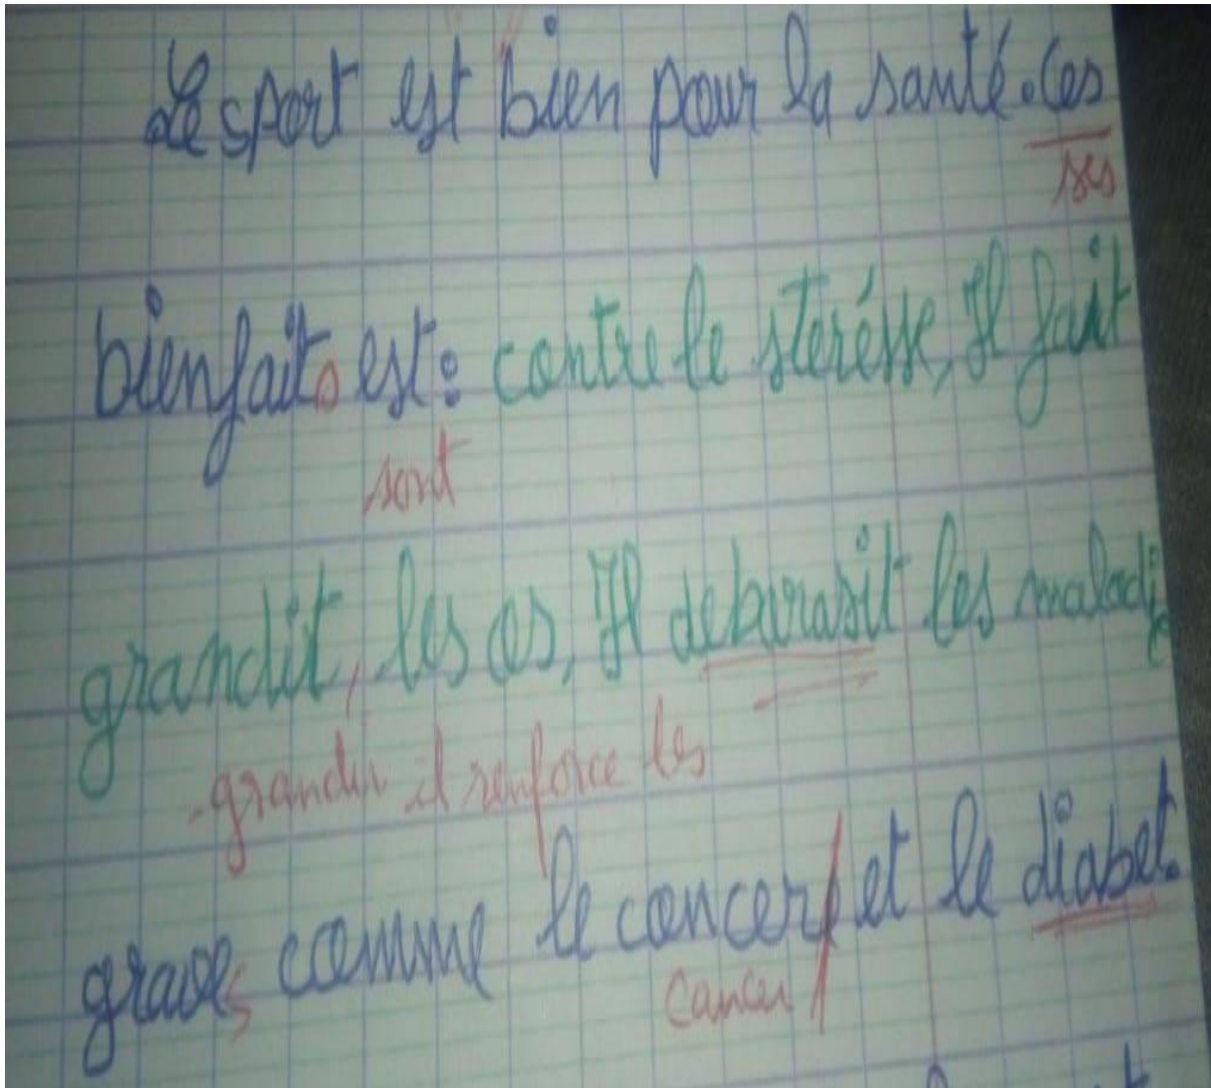 Le sport est bien pour la santé. Ces
ses
bienfaits est: contre le sterésse, Il fait
sont
grandit, les os, Il deburasit les maladie
grandir il renforce les
graves comme le concer et le diabet.
cancer